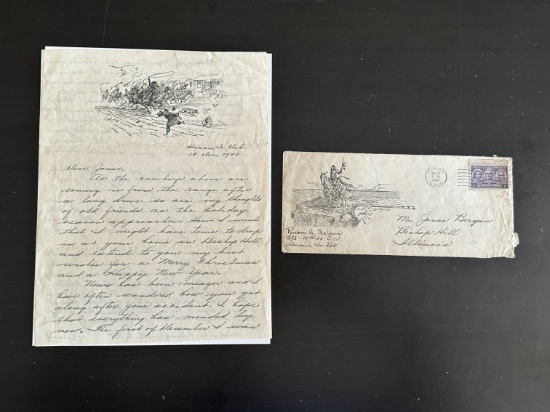 Huron, S. Dak.
18 Dec. 1948
Dear Jonas,
As the cow boys above are
coming in from the range after
a long drive so are my thoughts
of old friends as the holiday
season approaches. How I wish
that I might have time to drop
in at your home in Bishop Hill
and extend to you my best
wishes for a Merry Christmas
and a Happy New Year.
News has been meager and I
have often wondered how you got
along after your accident. I hope
that everything has mended by
now. The first of December I was
Mr. Jonas Berger
Bishop Hill
Illinois
Huron, S. Dak.